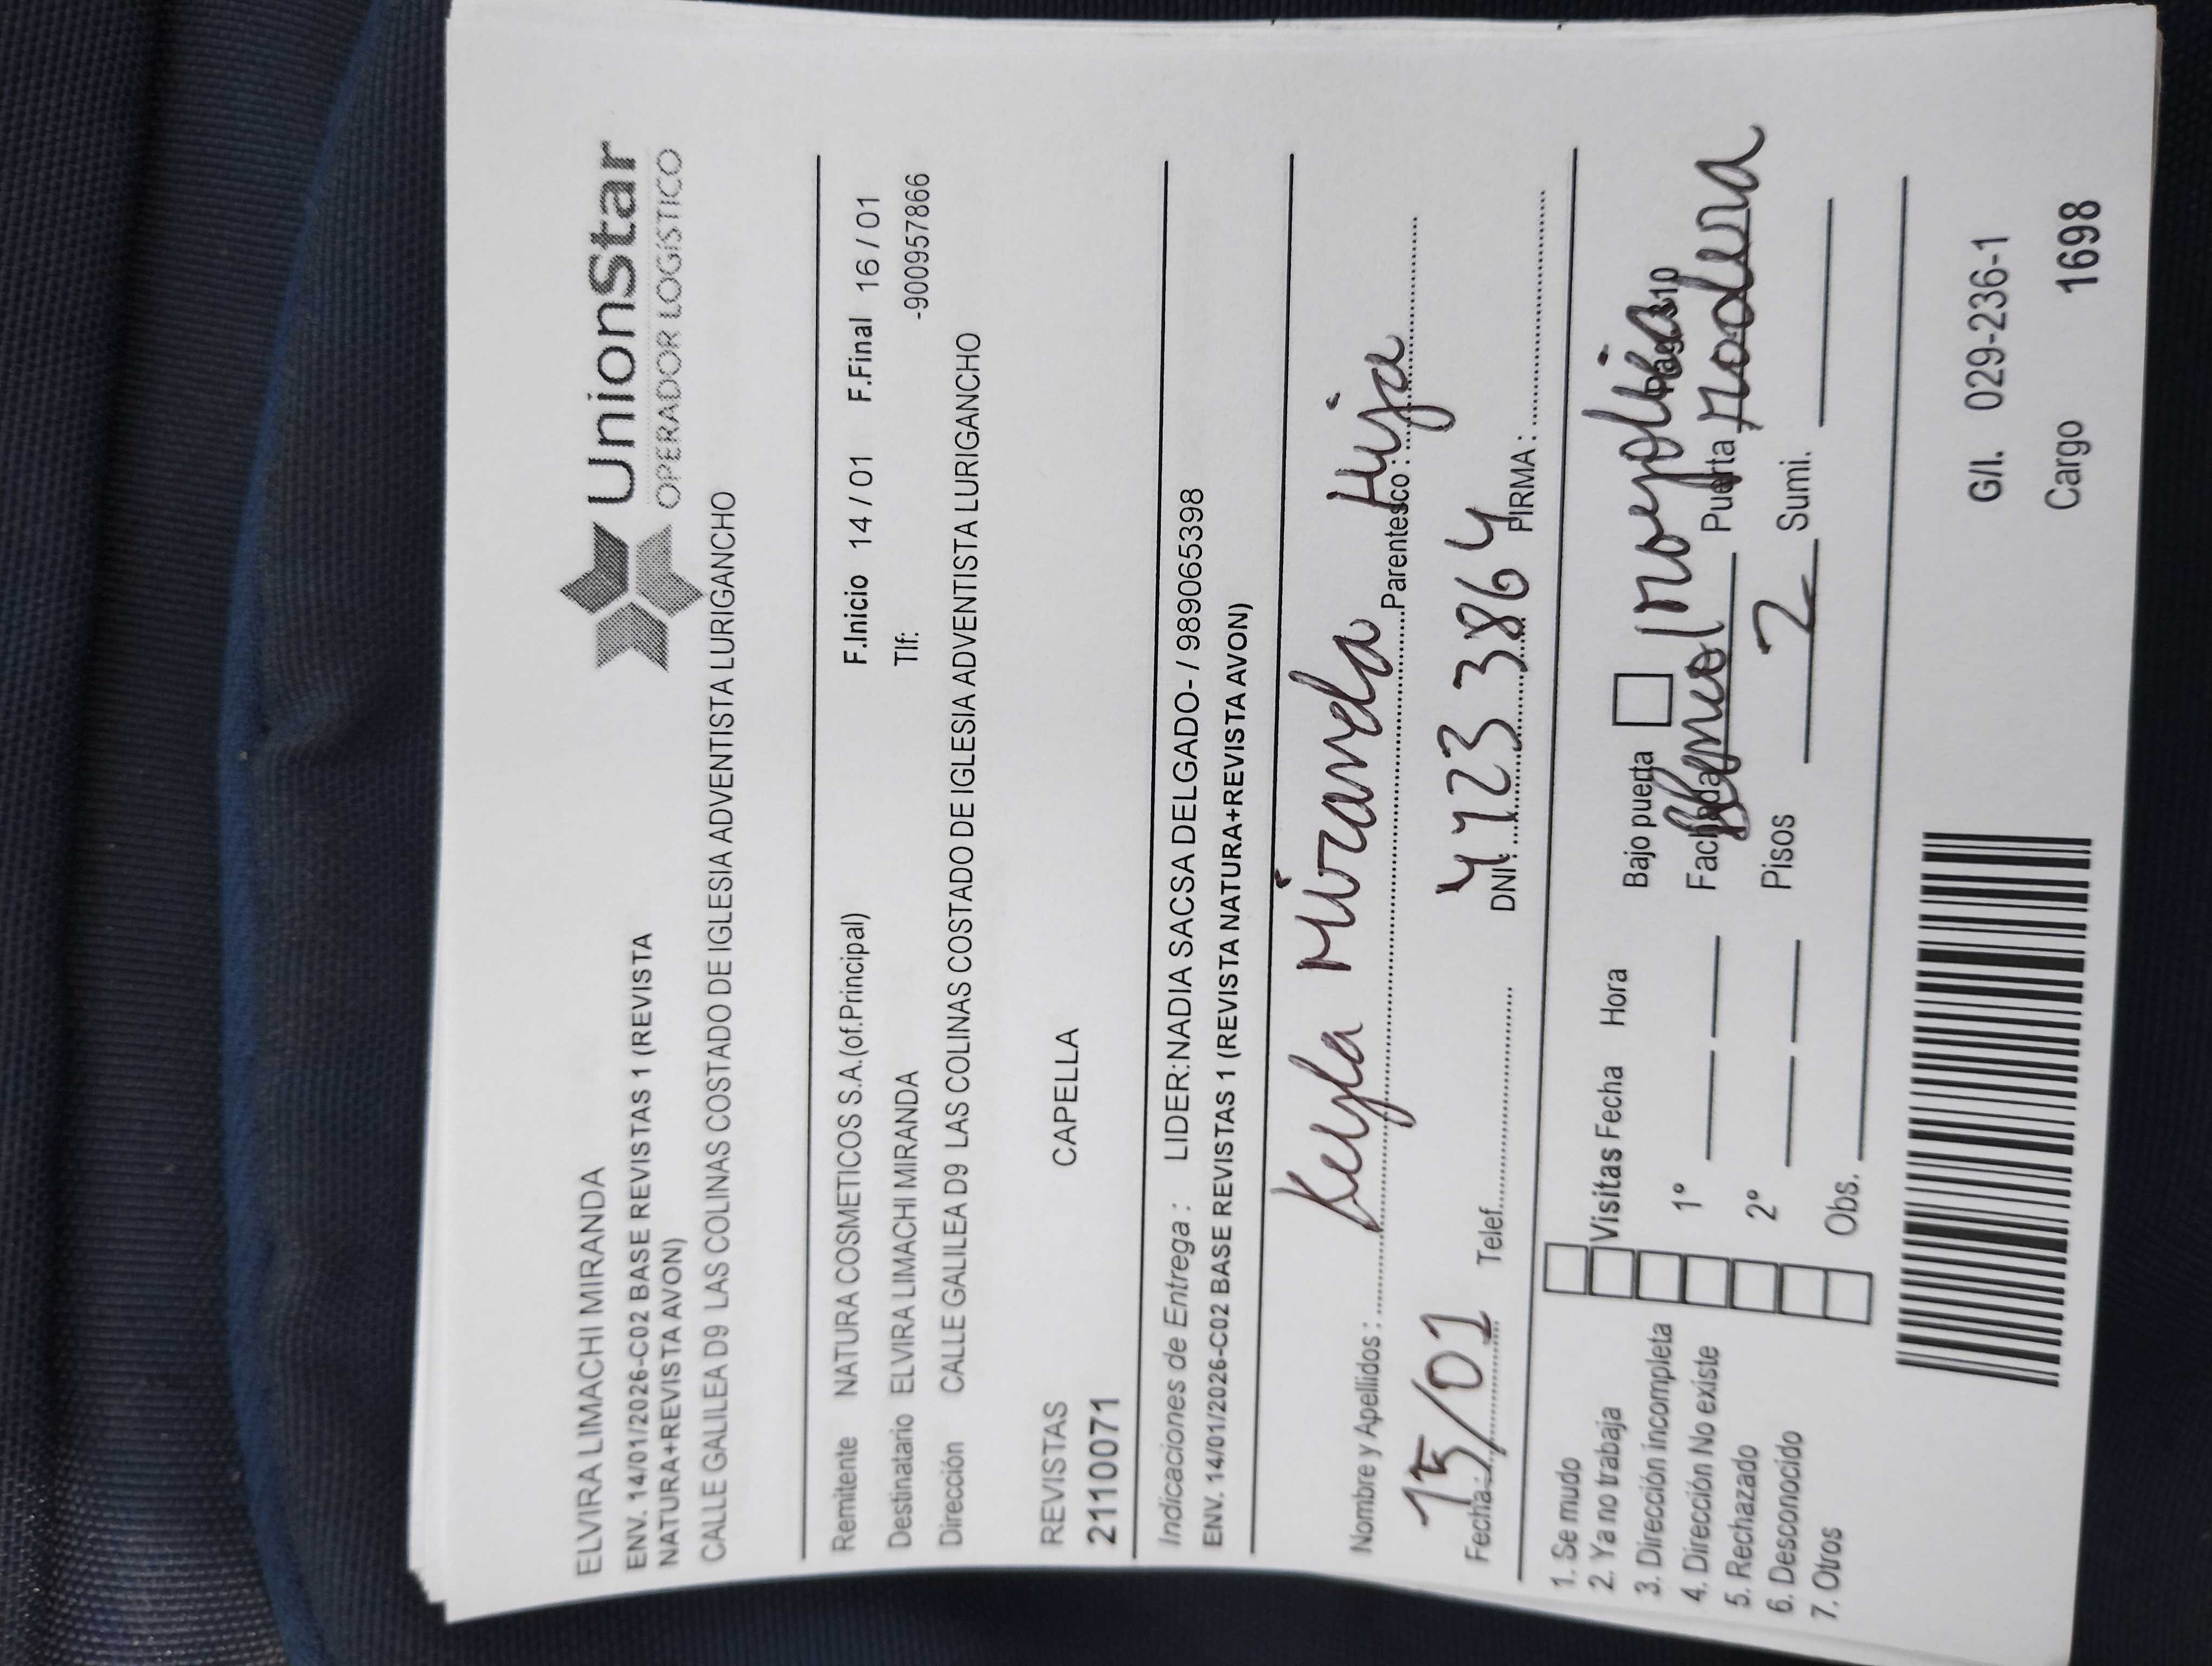 ELVIRA LIMACHI MIRANDA
ENV. 14/01/2026-C02 BASE REVISTAS 1 (REVISTA
NATURA+REVISTA AVON)
CALLE GALILEA D9 LAS COLINAS COSTADO DE IGLESIA ADVENTISTA LURIGANCHO
UnionStar
OPERADOR LOGÍSTICO
Remitente NATURA COSMETICOS S.A.(of.Principal) F.Inicio 14 / 01 F.Final 16 / 01
Destinatario ELVIRA LIMACHI MIRANDA Tlf: -900957866
Dirección CALLE GALILEA D9 LAS COLINAS COSTADO DE IGLESIA ADVENTISTA LURIGANCHO
REVISTAS CAPELLA
2110071
Indicaciones de Entrega : LIDER:NADIA SACSA DELGADO- / 989065398
ENV. 14/01/2026-C02 BASE REVISTAS 1 (REVISTA NATURA+REVISTA AVON)
Nombre y Apellidos : Keyla Miranda Parentesco : Hija
Fecha: 15/01 Telef. DNI: 47233864 FIRMA :
1. Se mudo
2. Ya no trabaja
3. Dirección incompleta
4. Dirección No existe
5. Rechazado
6. Desconocido
7. Otros
Visitas Fecha Hora
1º
2º
Obs.
Bajo puerta
Fachada Puerta madera
Pisos 2 Sumi.
G/I. 029-236-1
Cargo 1698